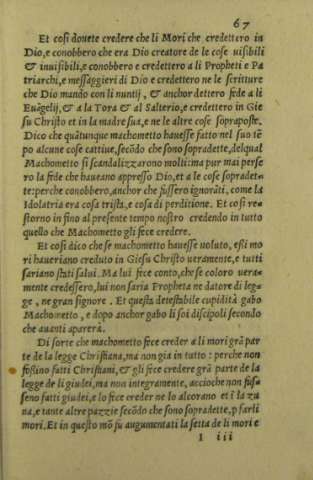 67
Et cosi douete credere che li Mori che credettero in
Dio, e conobbero che era Dio creatore de le cose uisibili
& inuisibili, e conobbero e credettero a li Propheti e Pa
triarchi, e messaggieri di Dio e credettero ne le scritture
che Dio mando con li nuntij, & anchor dettero fede a li
Euãgelij, & a la Tora & al Salterio, e credettero in Gie
su Christo et in la madre sua, e ne le altre cose sopraposte.
Dico che quãtunque machometto hauesse fatto nel suo tẽ
po alcune cose cattiue, secõdo che sono sopradette, del qual
Machometto si scandalizzarono molti: ma pur mai perse
ro la fede che haueano appresso Dio, et a le cose sopradet=
te: perche conobbero, anchor che fussero ignorãti, come la
Idolatria era cosa trista, e cosa di perditione. Et cosi re=
storno in fino al presente tempo nostro credendo in tutto
quello che Machometto gli fece credere.
Et cosi dico che se machometto hauesse uoluto, essi mo
ri haueriano creduto in Giesu Christo ueramente, e tutti
sariano stati salui. Ma lui fece conto, che se coloro uera=
mente credessero, lui non saria Propheta ne datore di leg=
ge, ne gran signore. Et questa detestabile cupidità gabo
Machometto, e dopo anchor gabo li soi discipoli secondo
che auanti aparerà.
Di sorte che machometto fece creder a li mori grã par
te de la legge Christiana, ma non gia in tutto: perche non
fossino fatti Christiani, & gli fece credere grã parte de la
legge de li giudei, ma non integramente, accioche non fus=
seno fatti giudei, e lo fece creder ne lo alcorano et ĩ la zu
na, e tante altre pazzie secõdo che sono sopradette, p farli
mori. Et in questo mõ su augumentati la setta de li mori e
I iii